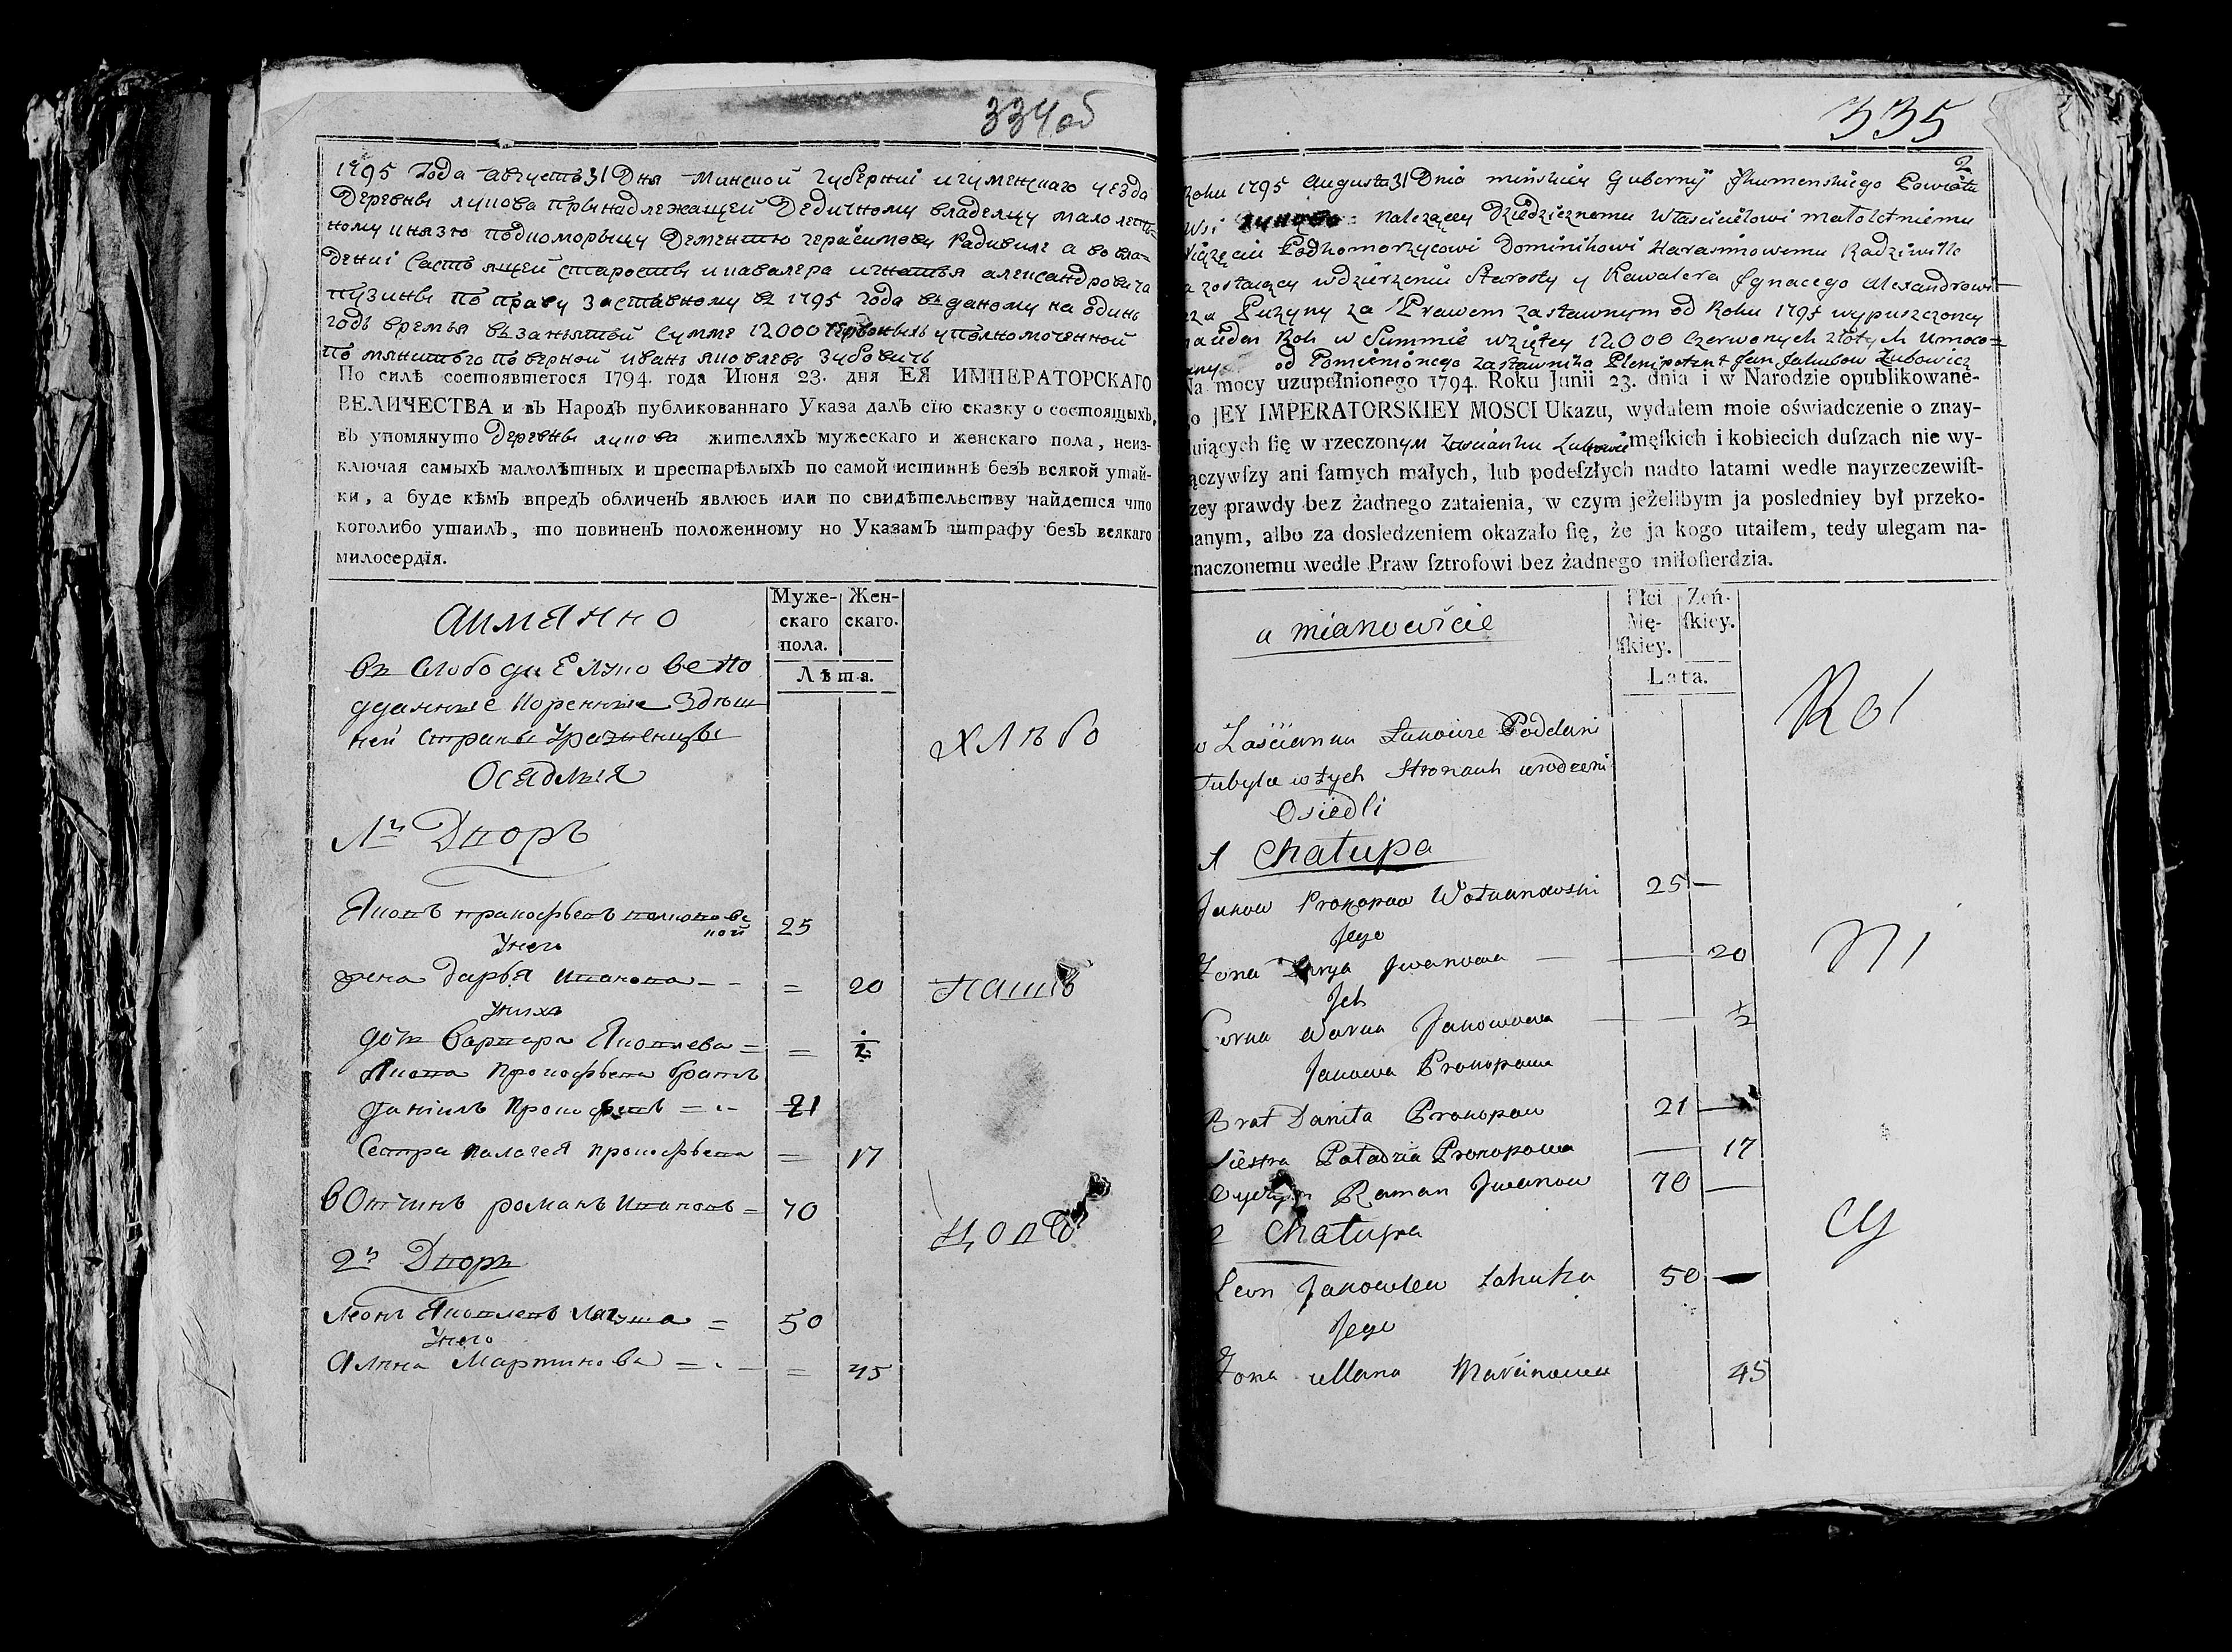 334 об
1795 Года августъ 31 Дня Минской Губерніи игуменскаго уезда
Деревны лукова прынадлежащей Дедичному владелцу малолетн-
ному князю подкоморыцу Дементию герасимову Радивиле а во вла-
дениі састоящей старосты и кавалера игнатья александровича
пузыны по праву заставному въ 1795 года въ даному на одинъ
годъ времья въ занятой сумме 12000 червоныхъ уполномоченной
поверной иванъ яковлевъ Зубовичъ
По силѣ состоявшегося 1794. года Июня 23. дня ЕЯ ИМПЕРАТОРСКАГО
ВЕЛИЧЕСТВА и въ НародЪ публикованнаго Указа далЪ сїю сказку о состоящыхЪ,
въ упомянуто деревны лукова жителяхЪ мужескаго и женскаго пола, неиз-
ключая самыхЪ малолѣтныхЪ и престарѣлыхЪ по самой истиннѣ безЪ всякой утай-
ки, а буде кѣмЪ впредЪ обличенЪ явлюсь или по свидѣтельству найдется что
коголибо утаилЪ, то повиненЪ положенному по УказамЪ штрафу безЪ всякаго
милосердїя.
аимянно
Муже-
скаго
пола.
Жен-
скаго.
Лѣта.
въ Слободи Е луковe по
дданные коренные Здѣш
ней страны
Оседлыя
хлѣбо
1й Дворъ
Яковъ прокофьевъ 25
Унего
жена дарья иванова - - = 20
пашъ
Унихъ
дочь варвара Яковлева = = 1/2
Якова Прокофьева братъ
даниилъ прокофьевъ = - 21
Сестра палагея прокофьева = 17
вотчимъ романъ ивановъ = 70
цовъ
2й Дворъ
леонъ Яковлевъ = 50
Унего
Мартинова = - = 45
335
2
Roku 1795 Augusta 31 Dnia minskiey Gubernÿ Jhumenskiego Powiatu
Wsi należącey Dziedzicznemu Właścicielowi małoletniemu
Xiążęciu Podkomorzycowi Dominikowi Harasimowemu Radziwille
a zostaiącey wdzierżeniu Starosty y Kawalera Jgnacego Alexandrowi-
cza Puzyny za Prawem zastawnym od Roku 1795 wypuszczoney
na ieden Rok w Summie wziętey 12000 czerwonych złotych umoco-
wany od Pomienionego zastawnika Plenipotent Jan Jakubow Zubowicz
Na mocy uzupełnionego 1794. Roku Junii 23. dnia i w Narodzie opublikowane-
go JEY IMPERATORSKIEY MOSCI Ukazu, wydałem moie oświadczenie o znay-
duiących ſię w rzeczonym zaścianku Łukowie męſkich i kobiecich duſzach nie wy-
łączywſzy ani ſamych małych, lub podeſzłych nadto latami wedle nayrzeczewiſt-
ſzey prawdy bez żadnego zataienia, w czym jeżelibym ja posledniey był przeko-
nanym, albo za dosledzeniem okazało ſię, że ja kogo utaiłem, tedy ulegam na-
znaczonemu wedle Praw ſztrofowi bez żadnego miłoſierdzia.
a mianowicie
Płci
Mę-
ſkiey.
Zeń-
ſkiey.
Lata.
w Zaścianku Łukowie Poddani
tubylce w tych Stronach urodzeni
Osiedli
Rol
1 Chałupa
Jakow Prokopow Wołkanowski 25 —
Jego
Zona Darya Jwanowa — — 20
ni
Jch
Corka Warka Jakowowa — 1/2
Jakowa Prokopowa
Brat Daniła Prokopow 21 —
Siestra Paładzia Prokopowa — 17
Oyczym Raman Jwanow 70 —
cy
2 Chałupa
Leon Jakowlew Łahuta 50 —
Jego
Zona Marcinowa 45